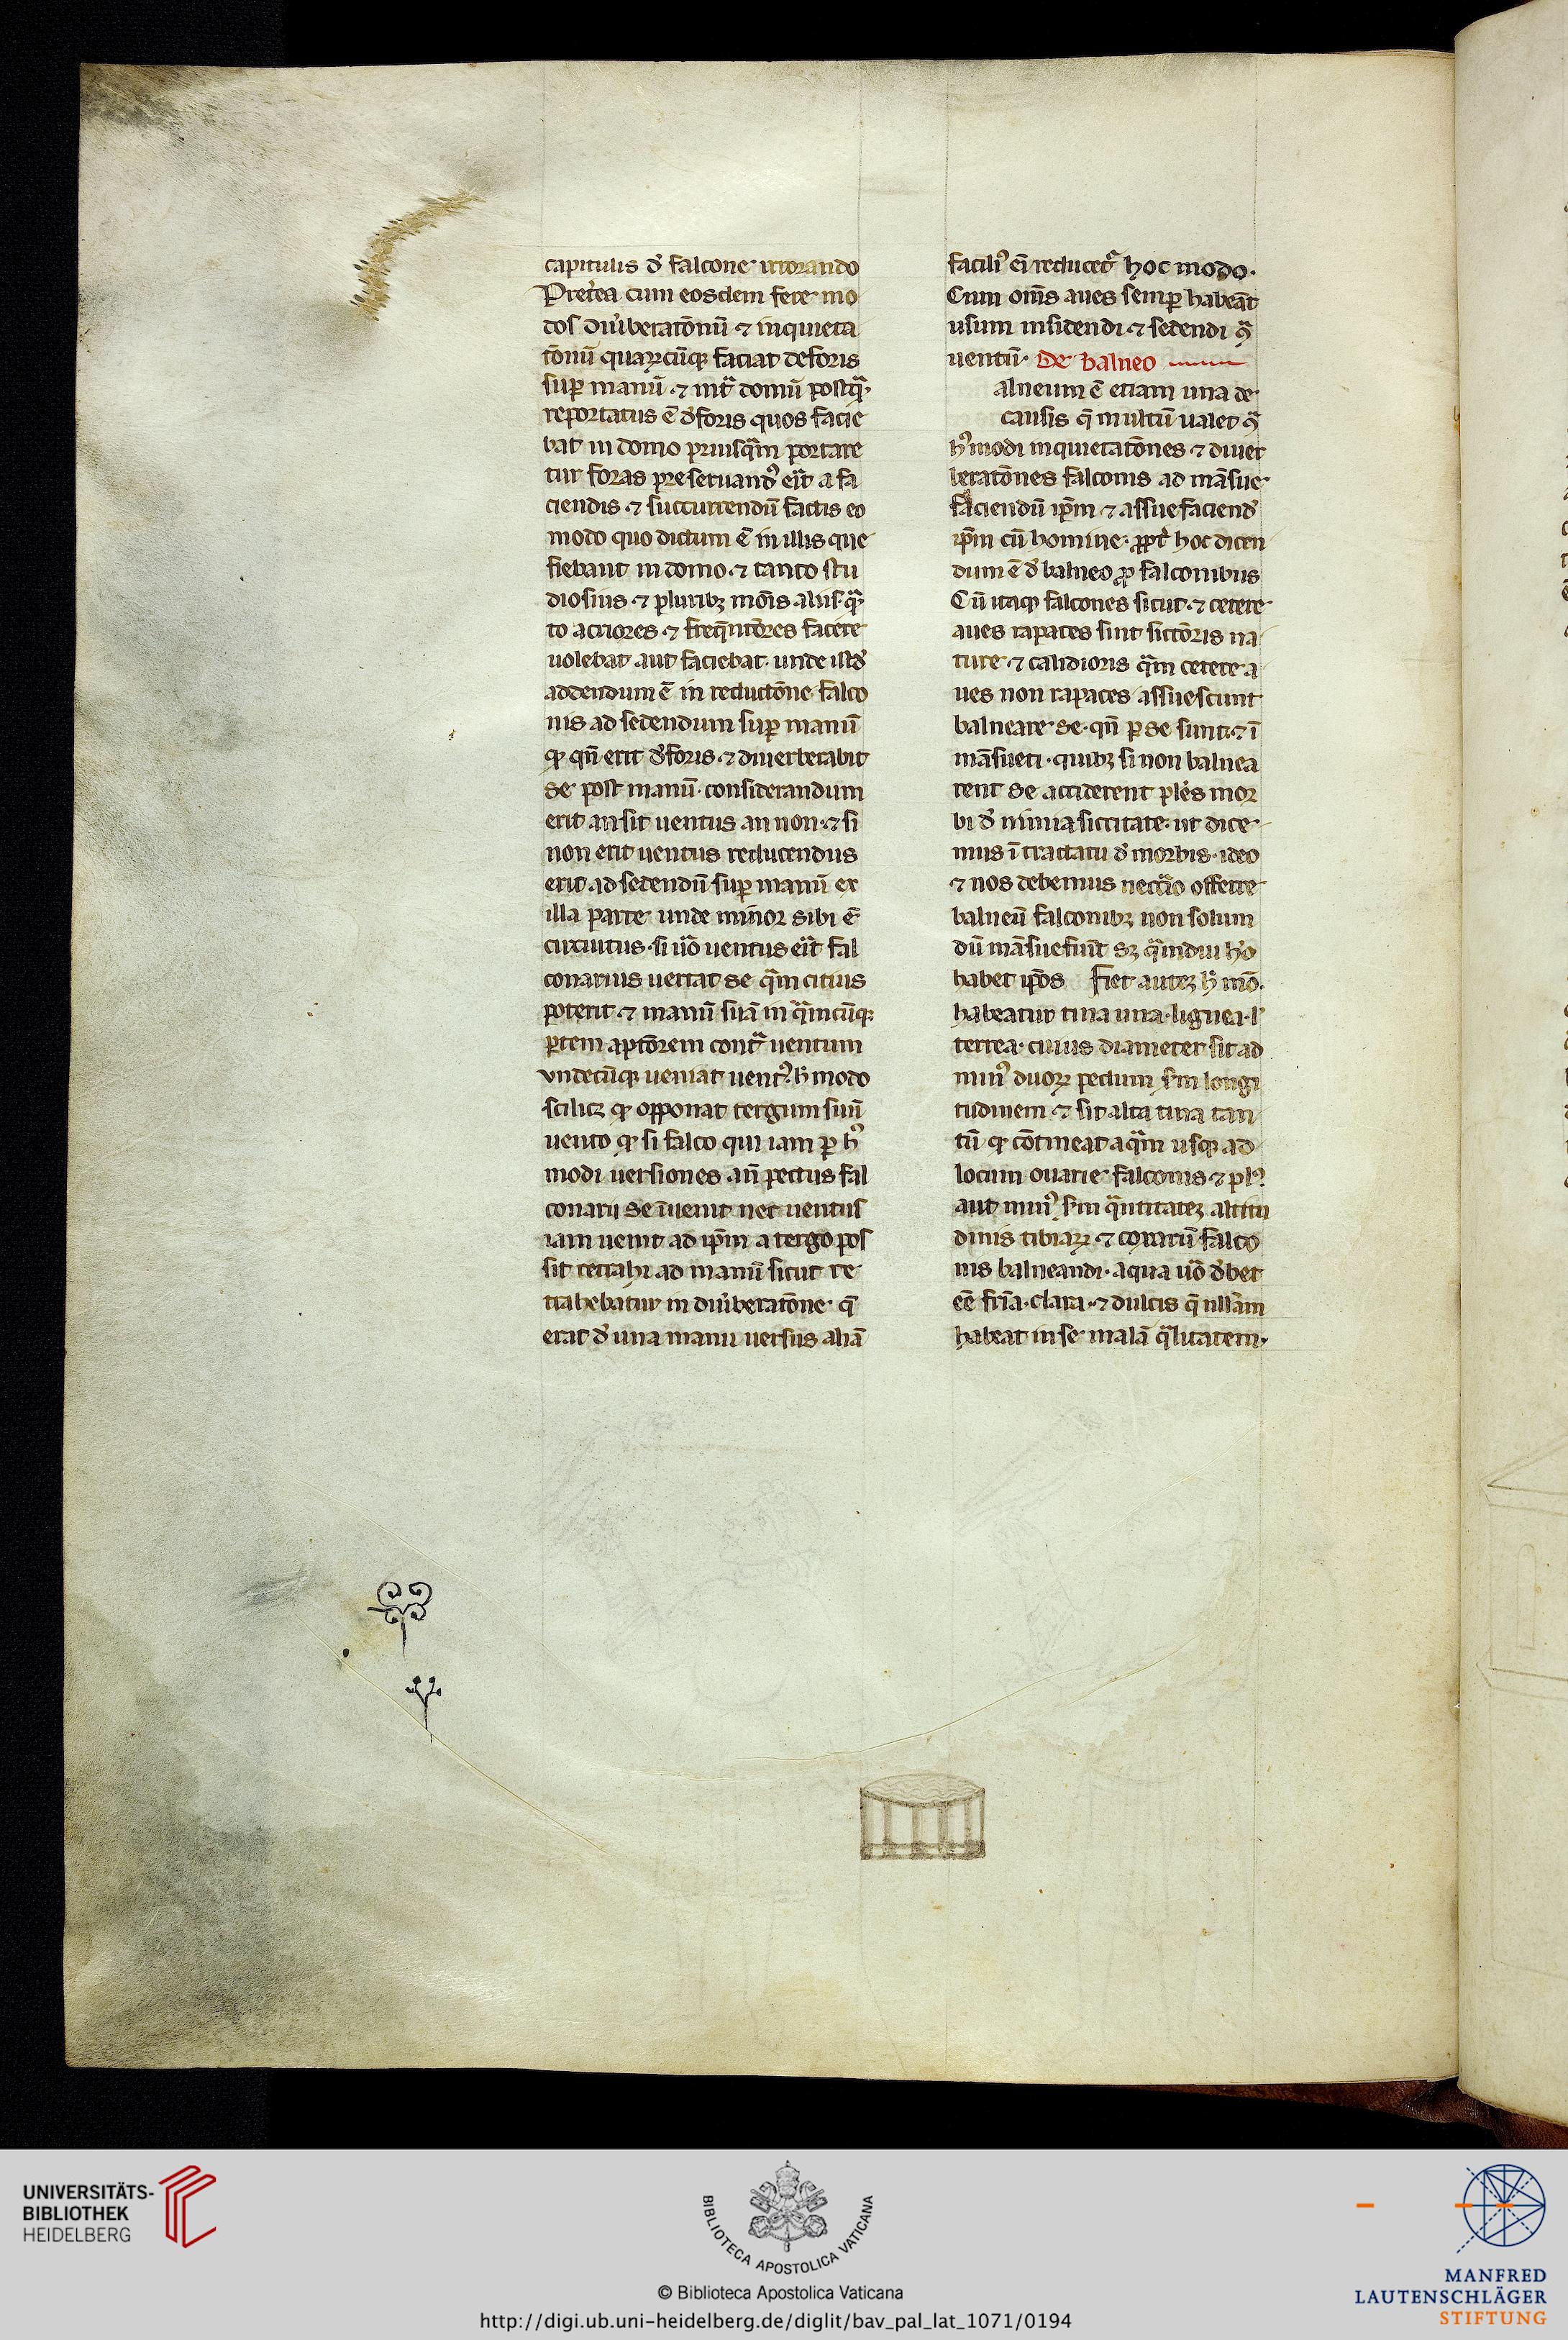 capitulis đ falcone irrorando
Pretea cum eosdem fere mo
dos diuberatōnū ⁊ inquieta
tōnū quaꝝcūqꝫ faciat deforis
suꝑ manū ⁊ int̃ domū postq̃
reportatus ē đforis quos facie
bat in domo priusq̃m portare
tur foras preseruandꝰ eīt a fa
ciendis ⁊ succurrendū factis eo
modo quo dictum ē in illis que
fiebant in domo ⁊ tanto stu
diosius ⁊ pluribꝫ mōis aliis q̃
to acriores ⁊ freq̄ntōres facere
uolebat aut faciebat. unde istđ
addendum ē in reductōne falco
nis ad sedendum suꝑ manū
ꝙ qn̄ erit đforis ⁊ diuerberabit
se post manū. considerandum
erit an sit uentus an non ⁊ si
non erit uentus reducendus
erit ad sedendū suꝑ manū ex
illa parte unde minor sibi ē
circuitus. si uō uentus eīt fal
conarius uertat se q̃m citius
poterit ⁊ manū suā in q̃mcūqꝫ
ꝑtem aptōrem cont̃ uentum
vndecūqꝫ ueniat uentꝰ. h̄ modo
scilicꝫ ꝙ opponat tergum suū
uento ꝙ si falco qui iam ꝑ hꝰ
modi uersiones an̄ pectus fal
conarii se īuenit nec uentus
iam uenit ad ip̄m a tergo pos
sit retrahi ad manū sicut re
trahebatur in diuberatōne q̄
erat đ una manu uersus aliā
faciliꝰ ei reducet̃ hoc modo.
Cum om̄s aues semꝑ habeāt
usum insidendi ⁊ sedendi q̃
uentū. De balneo
alneum ē etiam una de
causis q̄ multū ualet q̃
hꝰmodi inquietatōnes ⁊ diuer
beratōnes falconis ad māsue
faciendū ip̄m ⁊ assuefaciend
ip̄m cū homine. ꝓpt̃ hoc dicen
dum ē đ balneo ꝓ falconibus
Cū itaqꝫ falcones sicut ⁊ cetere
aues rapaces sint siccōris na
ture ⁊ calidioris q̃m cetere a
ues non rapaces assuescunt
balneare se. qn̄ ꝑ se sunt ⁊ ī
māsueti. quibꝫ si non balnea
rent se acciderent ples mor
bi đ nimia siccitate. ut dice
mus ī tractatu đ morbis. ideo
⁊ nos debemus necc̃io offerre
balneū falconibꝫ non solum
dū māsuefiūt sꝫ q̃mdiu hō
habet ip̄os Fiet auteꝫ h̄ mō.
habeatur tina una. lignea. l'
terrea. cuius diameter sit ad
minꝰ duoꝝ pedum sm̄ longi
tudinem ⁊ sit alta tina tan
tū ꝙ cōtineat aq̃m usqꝫ ad
locum ouarie falconis ⁊ plꝰ
aut minꝰ sm̄ q̃ntitateꝫ altitu
dinis tibiaꝝ ⁊ coxarū falco
nis balneandi. aqua uō đbet
eē fri̅a. clara. ⁊ dulcis q̄ nllam
habeat in se malā q̃litatem.
UNIVERSITÄTS-
BIBLIOTHEK
HEIDELBERG
BIBLIOTECA APOSTOLICA VATICANA
© Biblioteca Apostolica Vaticana
http://digi.ub.uni-heidelberg.de/diglit/bav_pal_lat_1071/0194
MANFRED
LAUTENSCHLÄGER
STIFTUNG